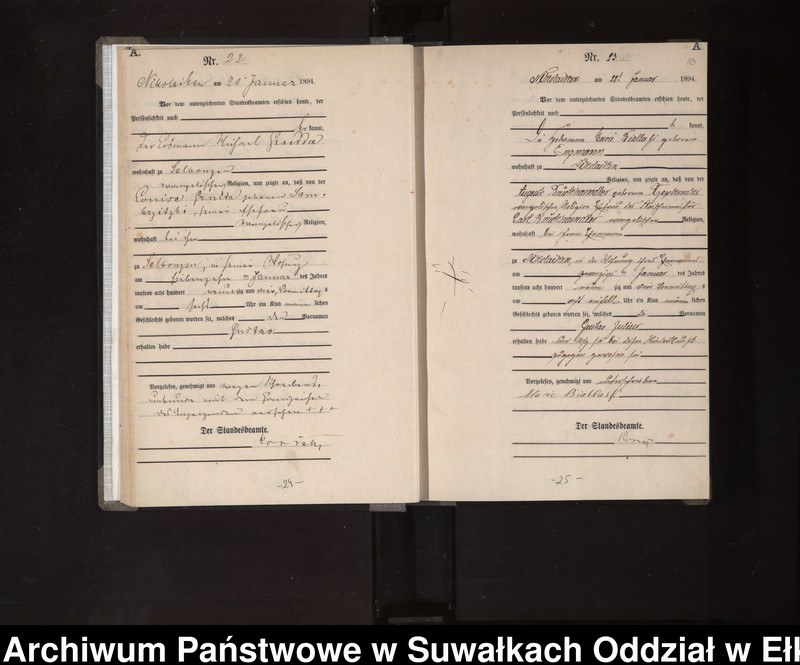 A.
Nr. 22
Nikolaiken am 20 Januar 1894.
Vor dem unterzeichneten Standesbeamten erschien heute, der
Persönlichkeit nach
kannt,
der Losmann Michael
wohnhaft zu Selbongen
evangelischer Religion, und zeigte an, daß von der
Louise geborene
seiner Ehefrau
evangelischer Religion,
wohnhaft bei ihm
zu Selbongen, in seiner
am siebenzehn ten Januar des Jahres
tausend acht hundert neunzig und vier, Vormittag s
um sechs Uhr ein Kind männ lichen
Geschlechts geboren worden sei, welches den Vornamen
Gustav
erhalten habe
Vorgelesen, genehmigt und wegen Schreibens
unkunde mit dem Handzeichen
des Anzeigenden versehen + + +
Der Standesbeamte.
-24-
A.
Nr. 23
13
Nikolaiken am 22t Januar 1894.
Vor dem unterzeichneten Standesbeamten erschien heute, der
Persönlichkeit nach
kannt,
Die Hebamme Marie geborene
wohnhaft zu Nikolaiken
Religion, und zeigte an, daß von der
August geborene
evangelischer Religion Ehefrau des
Carl evangelischer Religion,
wohnhaft bei ihrem Ehemann
zu Nikolaiken, in der Wohnung ihres Ehemannes
am zwanzig ten Januar des Jahres
tausend acht hundert neun zig und vier Vormittag s
um acht einhalb Uhr ein Kind männ lichen
Geschlechts geboren worden sei, welches die Vornamen
Gustav Julius
erhalten habe und daß sie bei dieser Niederkunft
zugegen gewesen sei
Vorgelesen, genehmigt und unterschrieben
Marie
Der Standesbeamte.
-25-
Archiwum Państwowe w Suwałkach Oddział w Ełk